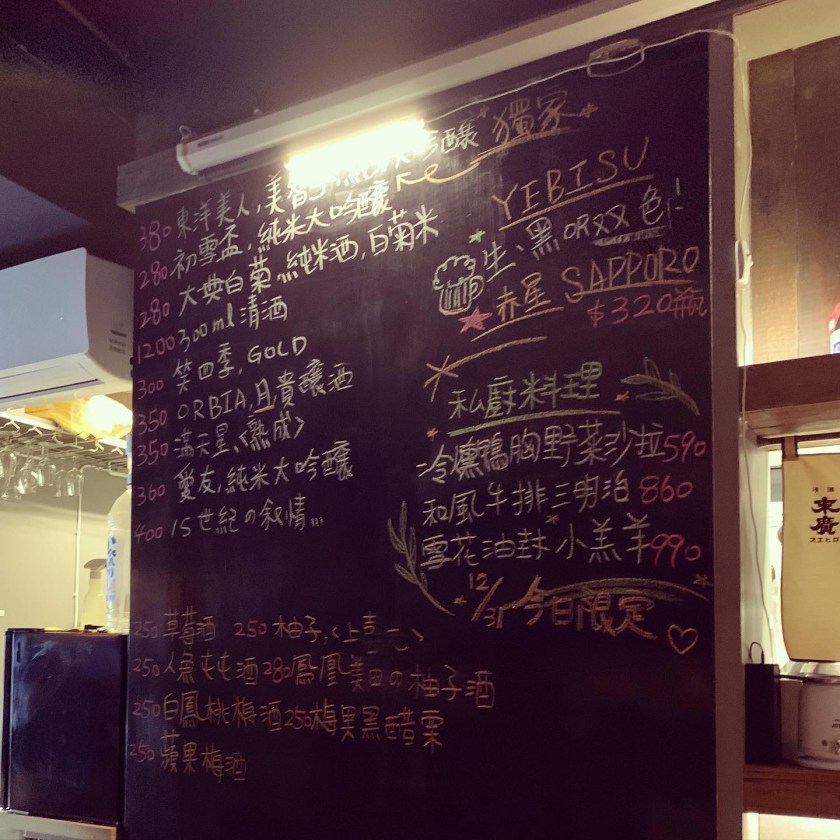 280 東洋美人,美智子,純米大吟醸 獨家
280 初雪盃,純米大吟醸
280 大典白菊,純米酒,白菊米
1200 300ml清酒
300 笑四季,GOLD
350 ORBIA,且貴醸酒
350 滿天星,<熟成>
360 愛友,純米大吟醸
400 15世紀の叙情
250 草莓酒 250 柚子,<上喜元>
250 人魚屯屯酒 280 鳳凰美田の柚子酒
250 白鳳桃梅酒 250 梅果黑醋栗
250 蘋果梅酒
YEBISU
生、黑 OR 双色!
赤星 SAPPORO
$320瓶
私廚料理
冷燻鴨胸野菜沙拉590
和風牛排三明治 860
雪花油封小羔羊990
12/31 今日限定
末廣
スヱヒロ